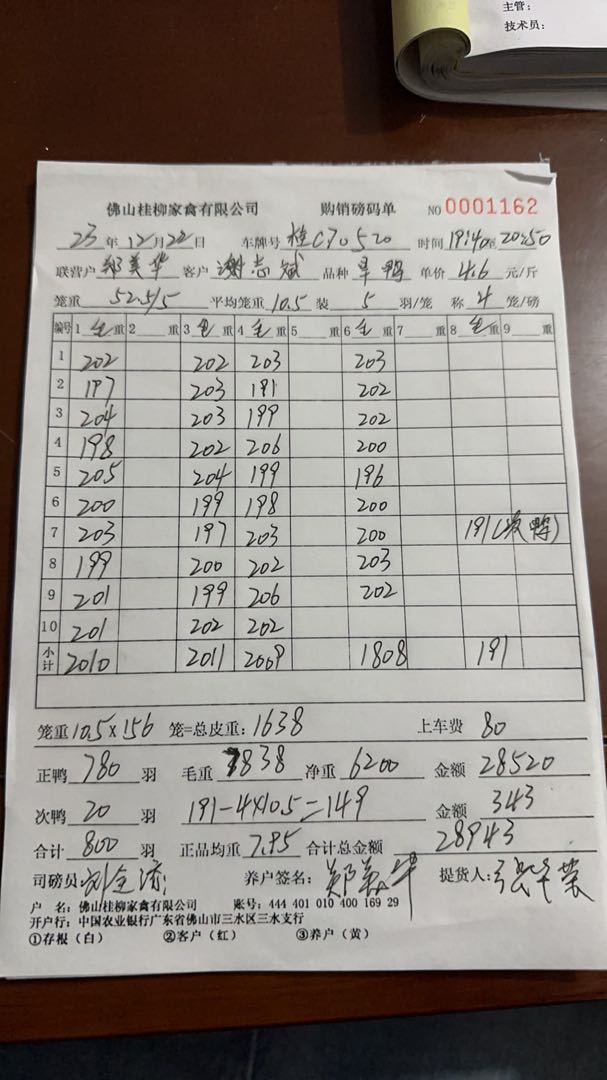 主管：
技术员：
佛山桂柳家禽有限公司 购销磅码单 NO 0001162
23年12月22日 车牌号 桂C70520 时间 19:40至20:50
联营户 郑美华 客户 谢志斌 品种 旱鸭 单价 4.6 元/斤
笼重 52.5/5 平均笼重 10.5 装 5 羽/笼 称 4 笼/磅
编号 1 毛重 2 重 3 毛重 4 毛重 5 重 6 毛重 7 重 8 毛重 9 重
1 202 202 203 203
2 197 203 191 202
3 204 203 199 202
4 198 202 206 200
5 205 204 199 196
6 200 199 198 200
7 203 197 203 200 191(次鸭)
8 199 200 202 203
9 201 199 206 202
10 201 202 202
小计 2010 2011 2009 1808 191
笼重 10.5×156 笼=总皮重：1638 上车费 80
正鸭 780 羽 毛重 7838 净重 6200 金额 28520
次鸭 20 羽 191-4×10.5=149 金额 343
合计 800 羽 正品均重 7.95 合计总金额 28943
司磅员 养户签名：郑美华 提货人：
户 名：佛山桂柳家禽有限公司 账号：444 401 010 400 169 29
开户行：中国农业银行广东省佛山市三水区三水支行
①存根（白） ②客户（红） ③养户（黄）